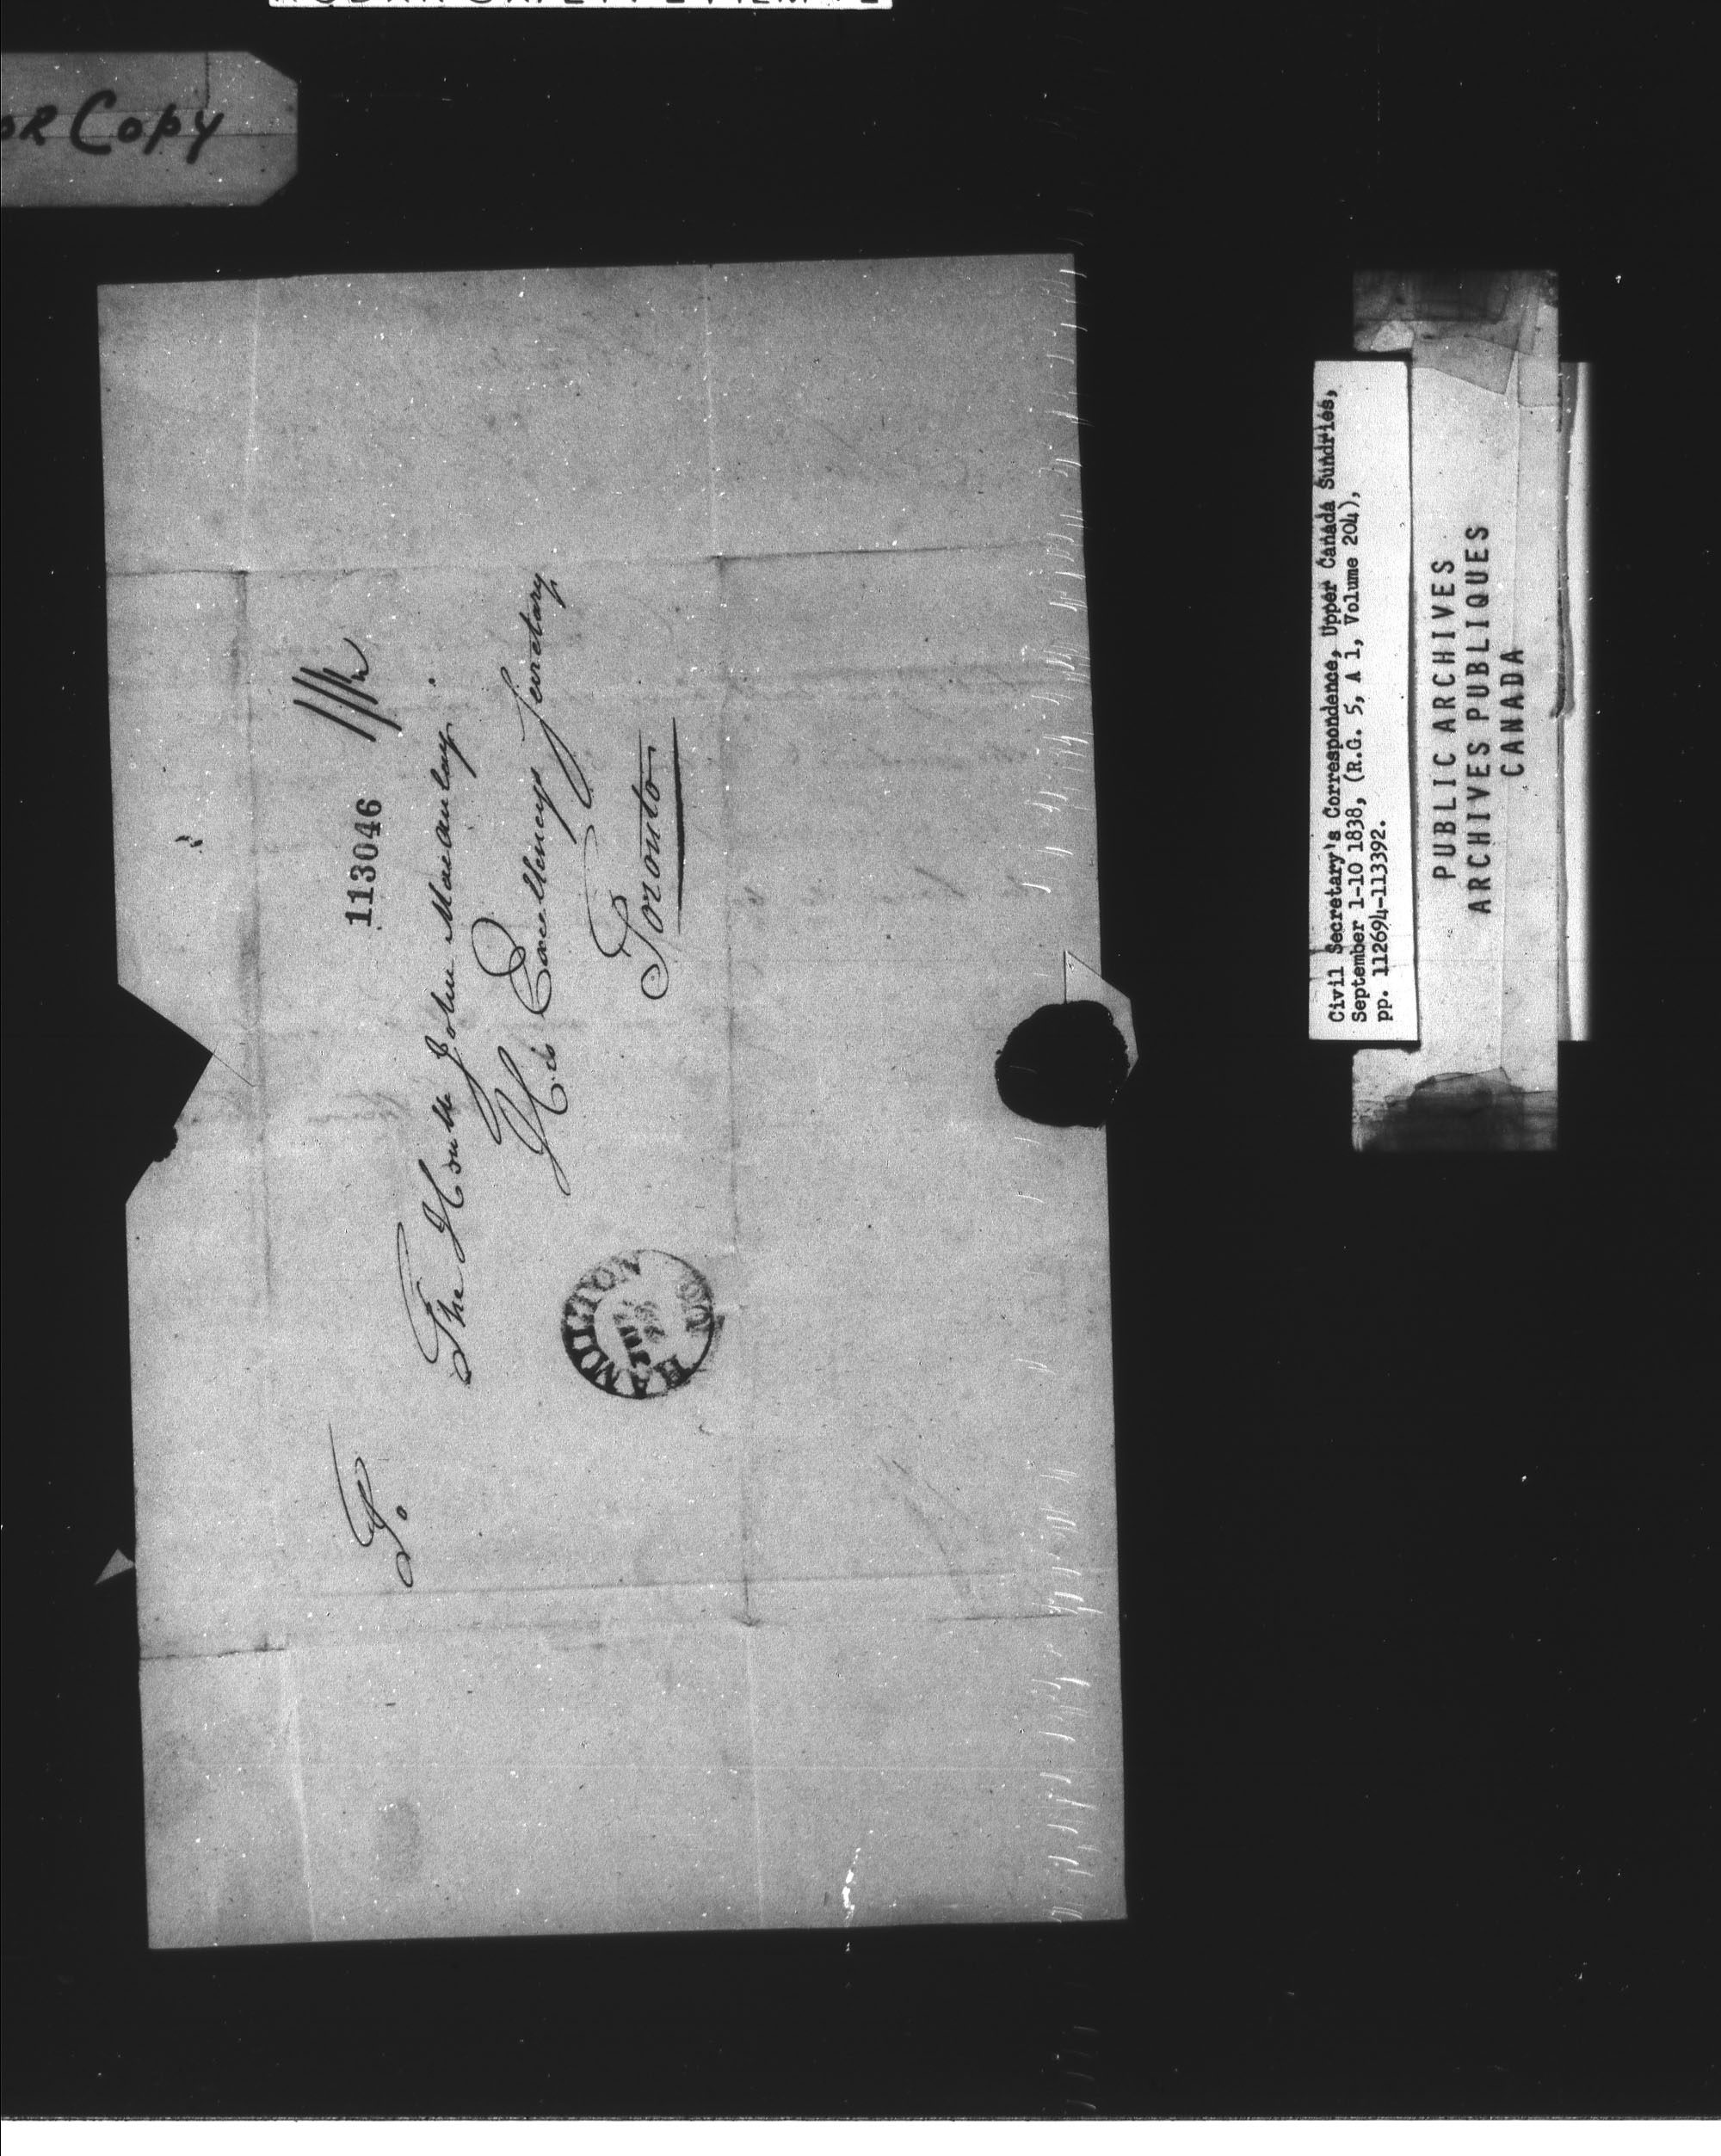 OR Copy
113046
To
The Honble John Macaulay
His Excellencys Secretary
Toronto
HAMILTON
Civil Secretary's Correspondence, Upper Canada Sundries,
September 1-10 1838, (R.G. 5, A 1, Volume 204),
pp. 112694-113392.
PUBLIC ARCHIVES
ARCHIVES PUBLIQUES
CANADA